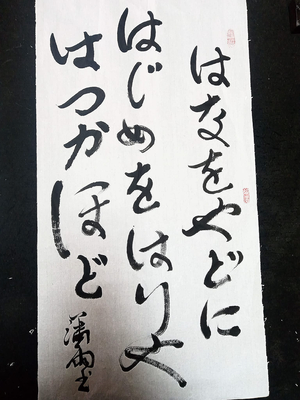 はなをやどに
はじめをはりや
はつかほど